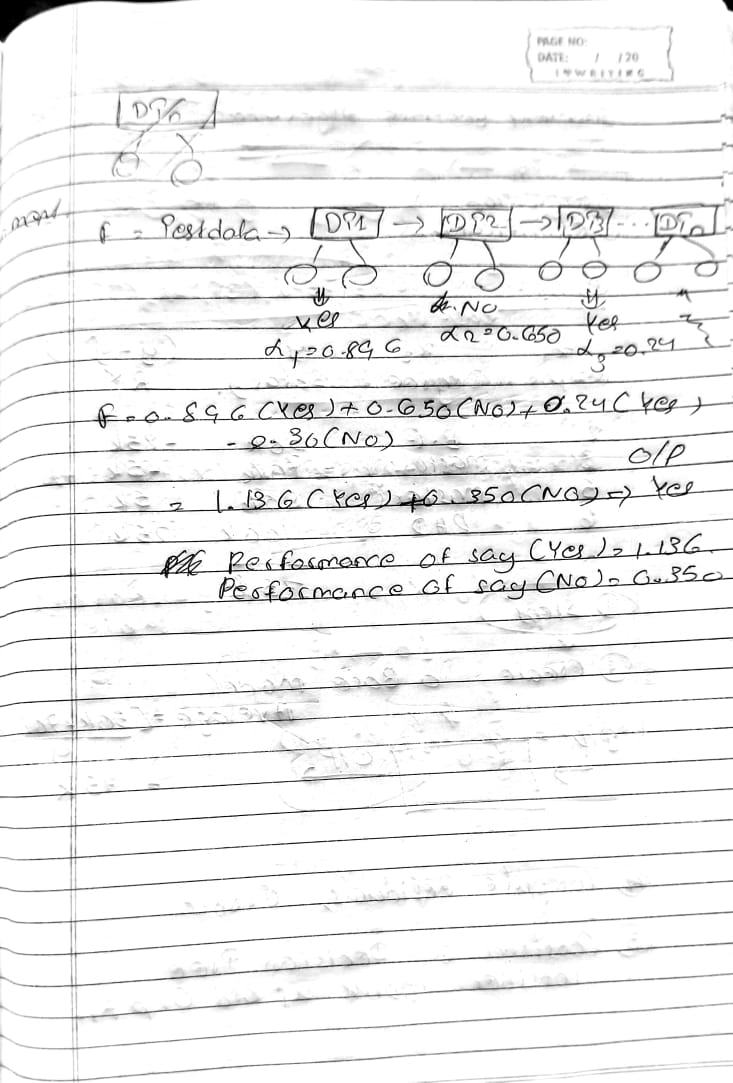 PAGE NO:
DATE: / /20
DTn
f = Testdata → DT1 → DT2 → DT3 ... DTn
Yes No Yes
α1=0.896 α2=0.650 α3=0.24
f = 0.896 (Yes) + 0.650 (No) + 0.24 (Yes)
- 0.30 (No)
O/P
= 1.136 (Yes) + 0.350 (No) ⇒ Yes
Performance of say (Yes) = 1.136
Performance of say (No) = 0.350